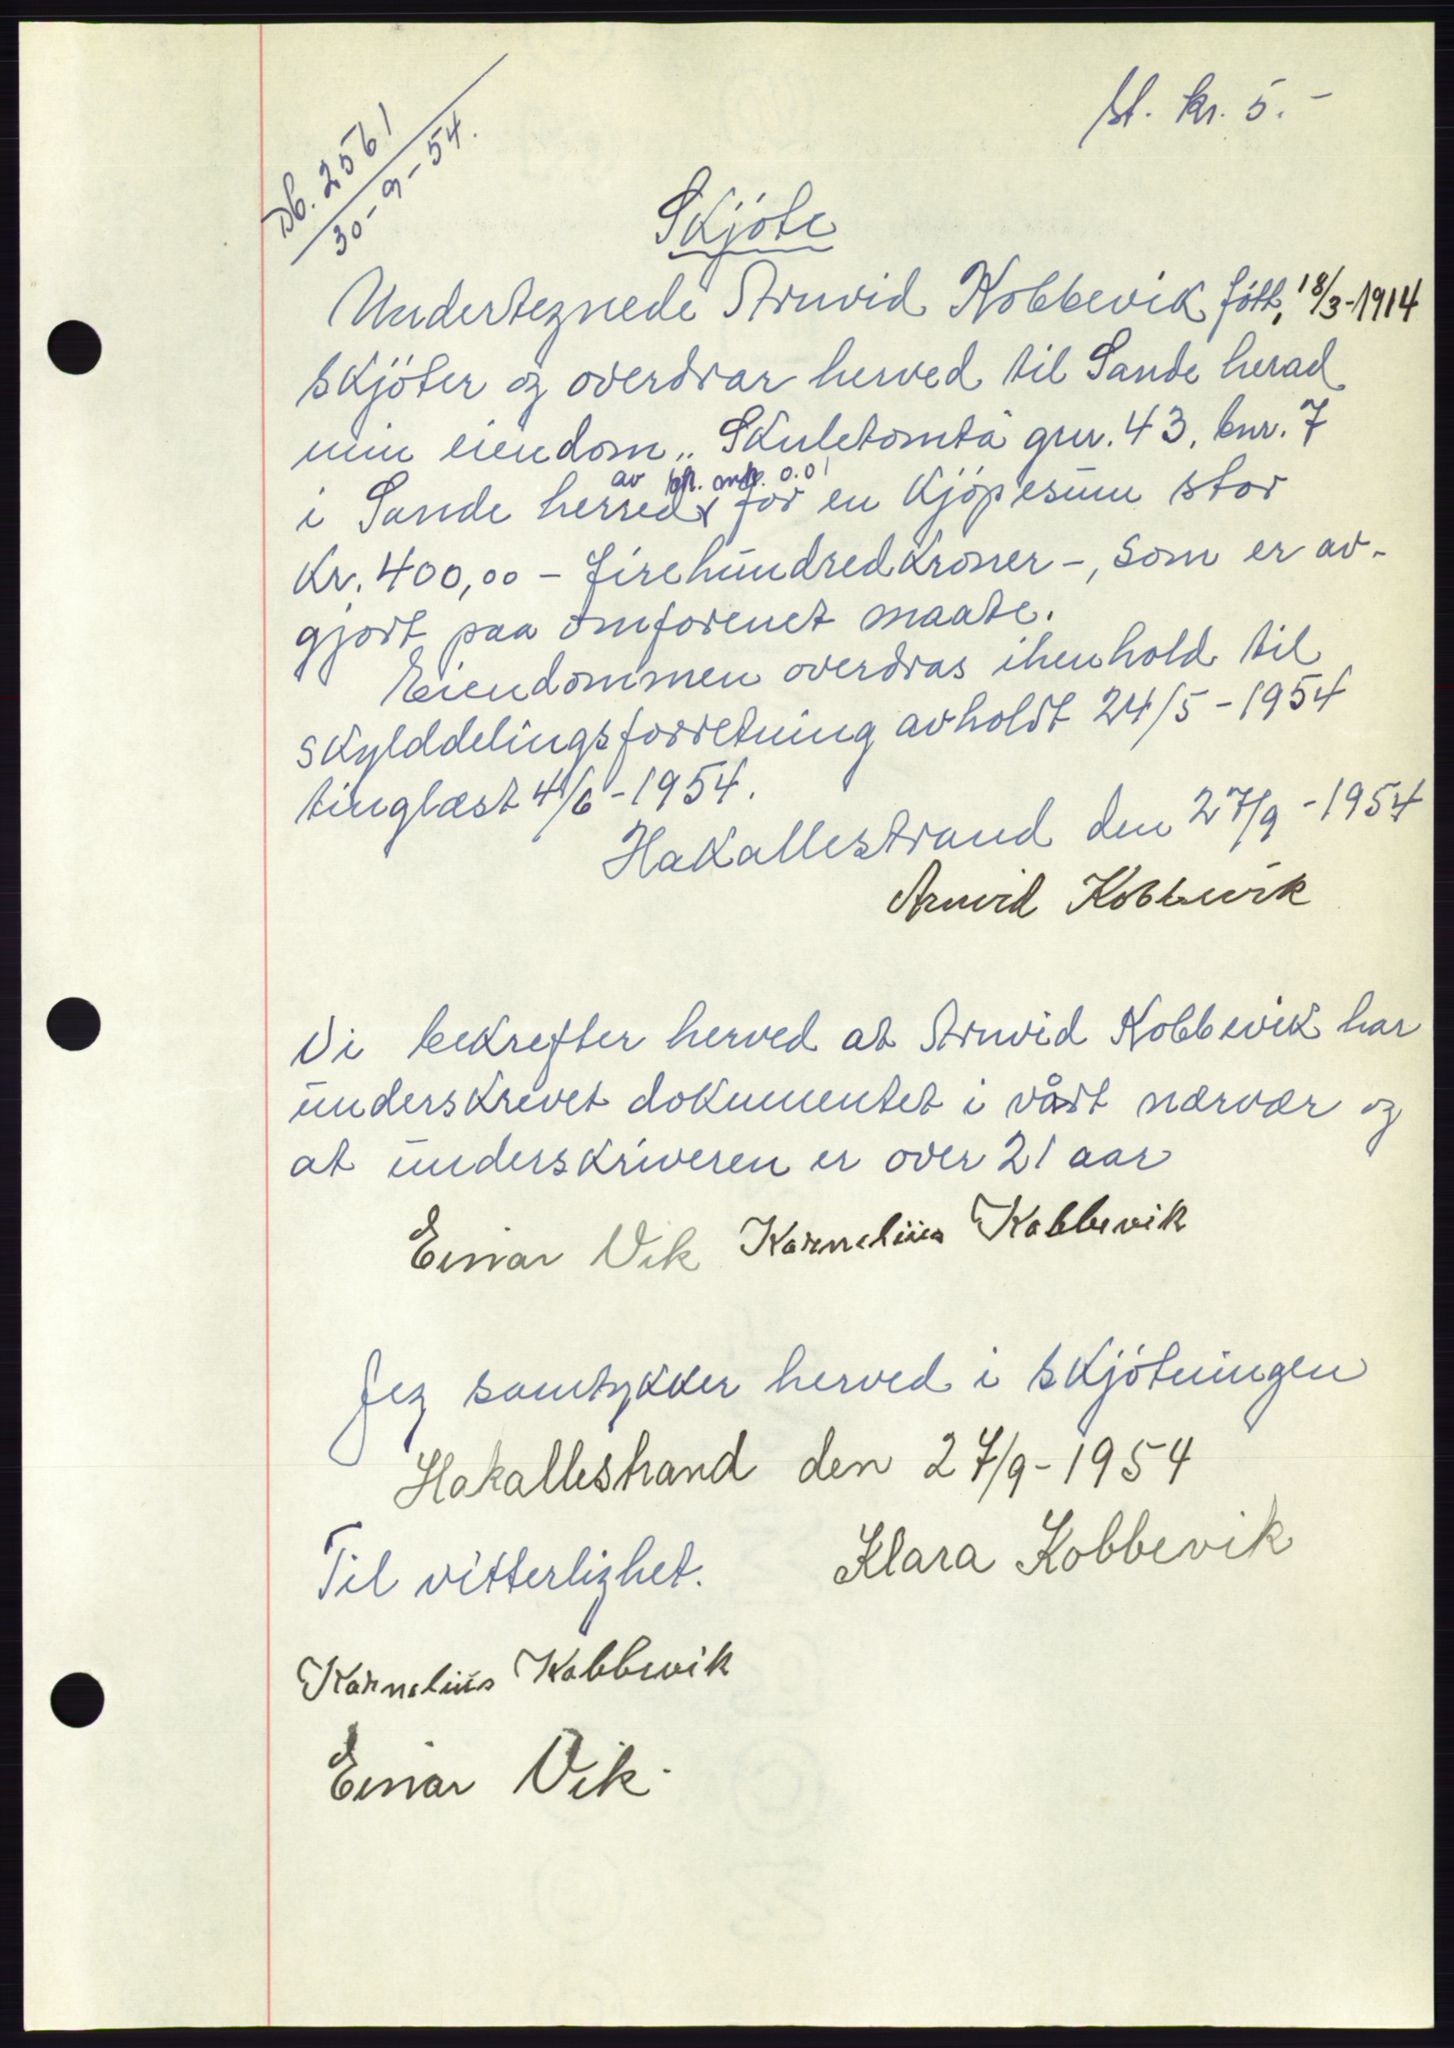 st. kr. 5.-
Db. 2561
30-9-54.
Skjöte
Underteznede Arnvid Kobbevik fött, 18/3-1914
skjöter og overdrar herved til Sande herad
min eiendom „Skuletomta gnr. 43, bnr. 7
av sk. mk. 0.01
i Sande herred x for en kjöpesum stor
Kr. 400,00 - firehundredkroner -, som er av-
gjort paa omforenet maate.
Eiendommen overdras ihenhold til
skylddelingsforretning avholdt 24/5-1954
tinglæst 4/6-1954.
Hakallestrand den 27/9-1954
Arnvid Kobbevik
Vi bekrefter herved at Arnvid Kobbevik har
underskrevet dokumentet i vårt nærvær og
at underskriveren er over 21 aar
Einar Vik Kornelius Kobbevik
Jeg samtykker herved i skjötningen
Hakallestrand den 27/9-1954
Til vitterlighet. Klara Kobbevik
Kornelius Kobbevik
Einar Vik.